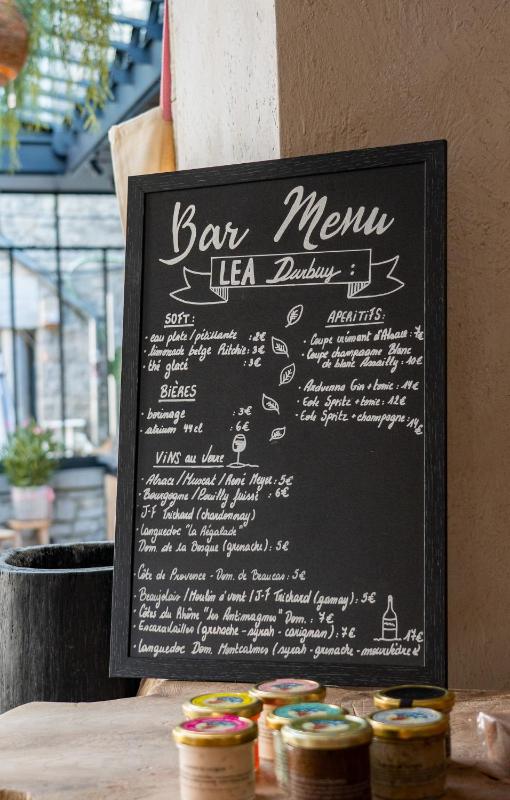 Bar Menu
LEA Durbuy :
SOFT :
- eau plate / pétillante : 2€
- limonade belge Ritchie : 3€
- thé glacé : 3€
BIÈRES
- borinage : 3€
- atrium 44 cl : 6€
APERITIFS :
- Coupe crémant d'Alsace : 7€
- Coupe champagne Blanc
de blanc Assailly : 10€
- Arduenna Gin + tonic : 14€
- Eole Spritz + tonic : 12€
- Eole Spritz + champagne : 14€
VINS au Verre
- Alsace / Muscat / René Meyer : 5€
- Bourgogne / Pouilly fuissé : 6€
J-F Trichard (chardonnay)
Languedoc "la Régalade"
Dom. de la Bosque (grenache) : 5€
Côte de Provence - Dom. de Beaucas : 5€
Beaujolais / Moulin à vent / J-F Trichard (gamay) : 5€
- Côtes du Rhône "les Antimagnes" Dom. : 7€
- Escarailalles (grenache - syrah - carignan) : 7€
17€
- Languedoc Dom. Montcalmes (syrah - grenache - mourvèdre)